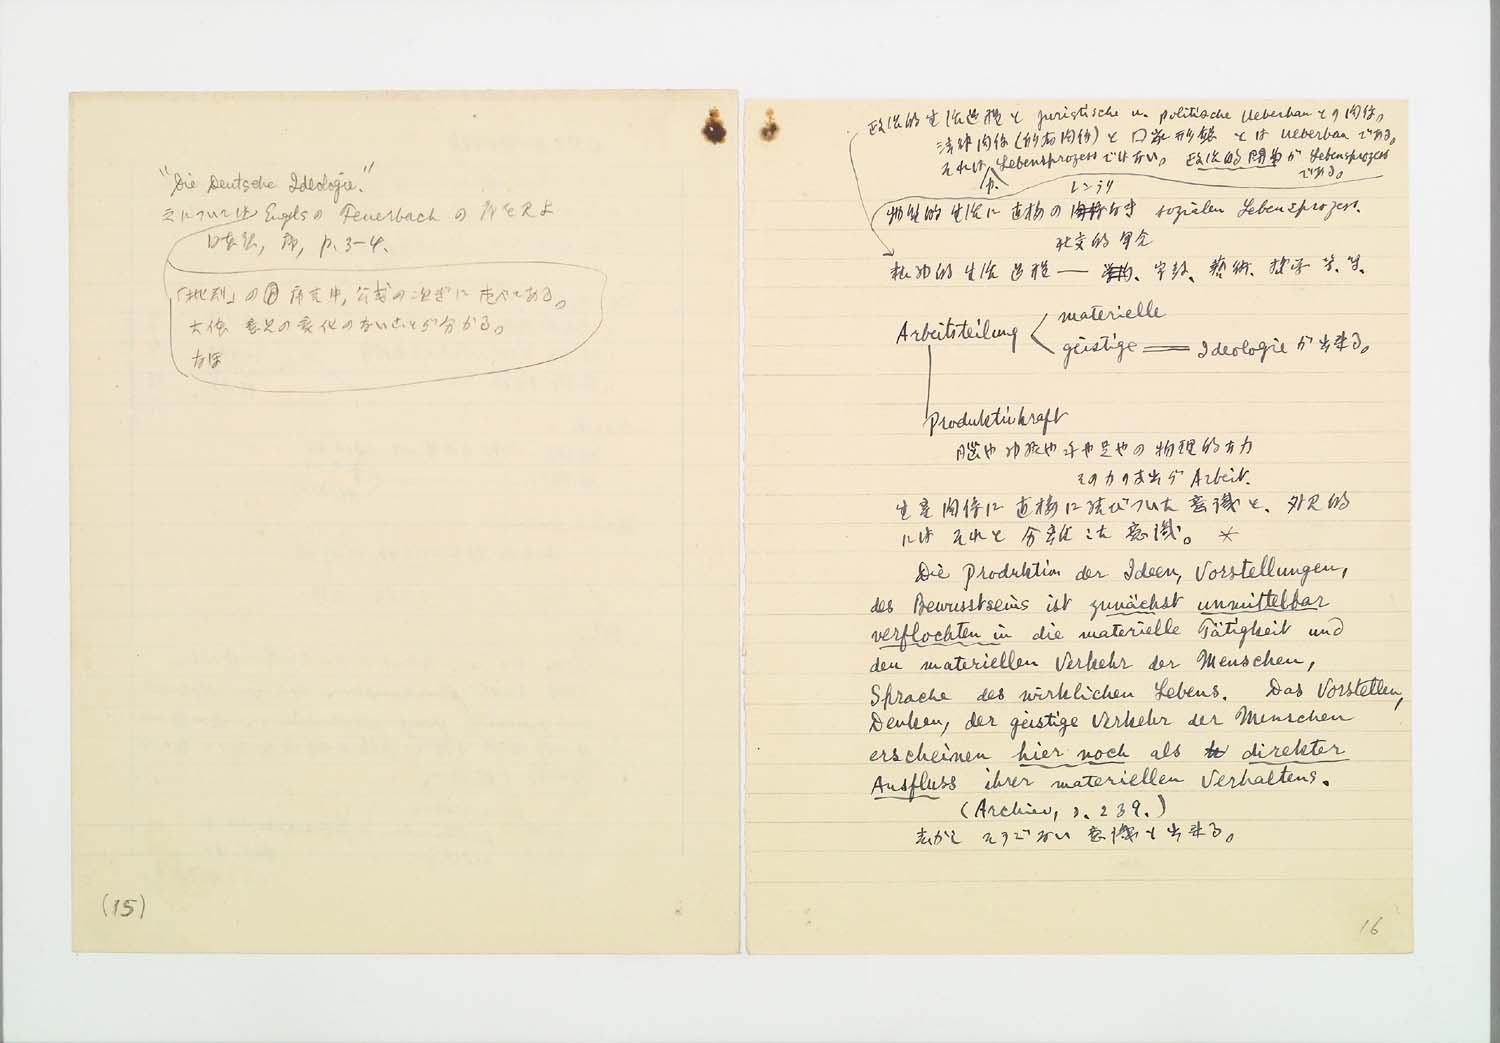 "Die Deutsche Ideologie."
については Engels の Feuerbach の 序を見よ
p. 3-4.
「批判」の 序文中, 公式の次ぎに述べてある。
大体 意見の変化のないことが分かる。
(15)
政治的生活過程と juristische u. politische Ueberbau との関係。
法律関係(所有関係)と 国家形態 とは Ueberbau である。
それは Lebensprozess ではない。 政治的闘争が Lebensprozess
である。
物質的生活に直接の sozialen Lebensprozess.
社交的
精神的生活過程 — 宗教、藝術、哲学 等.等.
Arbeitsteilung
materielle
geistige = Ideologie が出来る。
Produktivkraft
脳や 神経や 手や 足やの 物理的な力
その力の支出が Arbeit.
生産関係に直接に結びついた意識と、外見的
にはそれと 分離した意識。 *
Die Produktion der Ideen, Vorstellungen,
des Bewusstseins ist zunächst unmittelbar
verflochten in die materielle Tätigkeit und
den materiellen Verkehr der Menschen,
Sprache des wirklichen Lebens. Das Vorstellen,
Denken, der geistige Verkehr der Menschen
erscheinen hier noch als direkter
Ausfluss ihrer materiellen Verhaltens.
(Archiev, s. 239.)
そうでない意識も出来る。
16